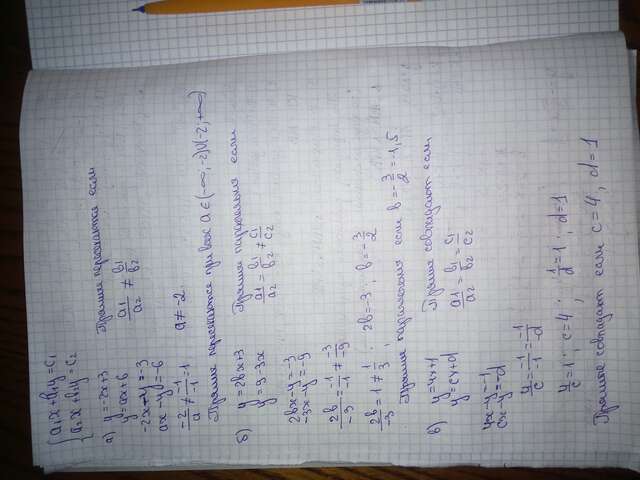 { a₁x + b₁y = c₁
a₂x + b₂y = c₂
а) y = -2x+3 Прямые пересекаются если
y = ax+6 a₁/a₂ ≠ b₁/a₂
-2x-y = -3
ax-y = -6
-2/a ≠ -1/-1 · 1 a ≠ -2
Прямые пересекаются при всех a ∈ (-∞; -2)∪(-2; +∞)
б) y = 2bx+3 Прямые параллельны если
y = 9-3x a₁/a₂ = b₁/b₂ ≠ c₁/c₂
2bx-y = -3
-3x-y = -9
2b/-3 = -1/-1 ≠ -3/-9
2b/-3 = 1 ≠ 1/3 ; 2b = -3 ; b = -3/2
Прямые параллельны если b = -3/2 = -1,5
в) y = 4x+1 Прямые совпадают если
y = cx+d a₁/a₂ = b₁/b₂ = c₁/c₂
4x-y = -1
cx-y = -d
4/c = -1/-1 = -1/-d
4/c = 1 ; c = 4 ; 1/d = 1 ; d = 1
Прямые совпадают если c = 4 ; d = 1